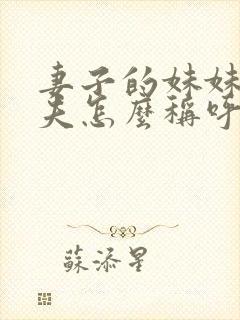 妻子的妹妹
夫怎麼稱呼
蘇添星